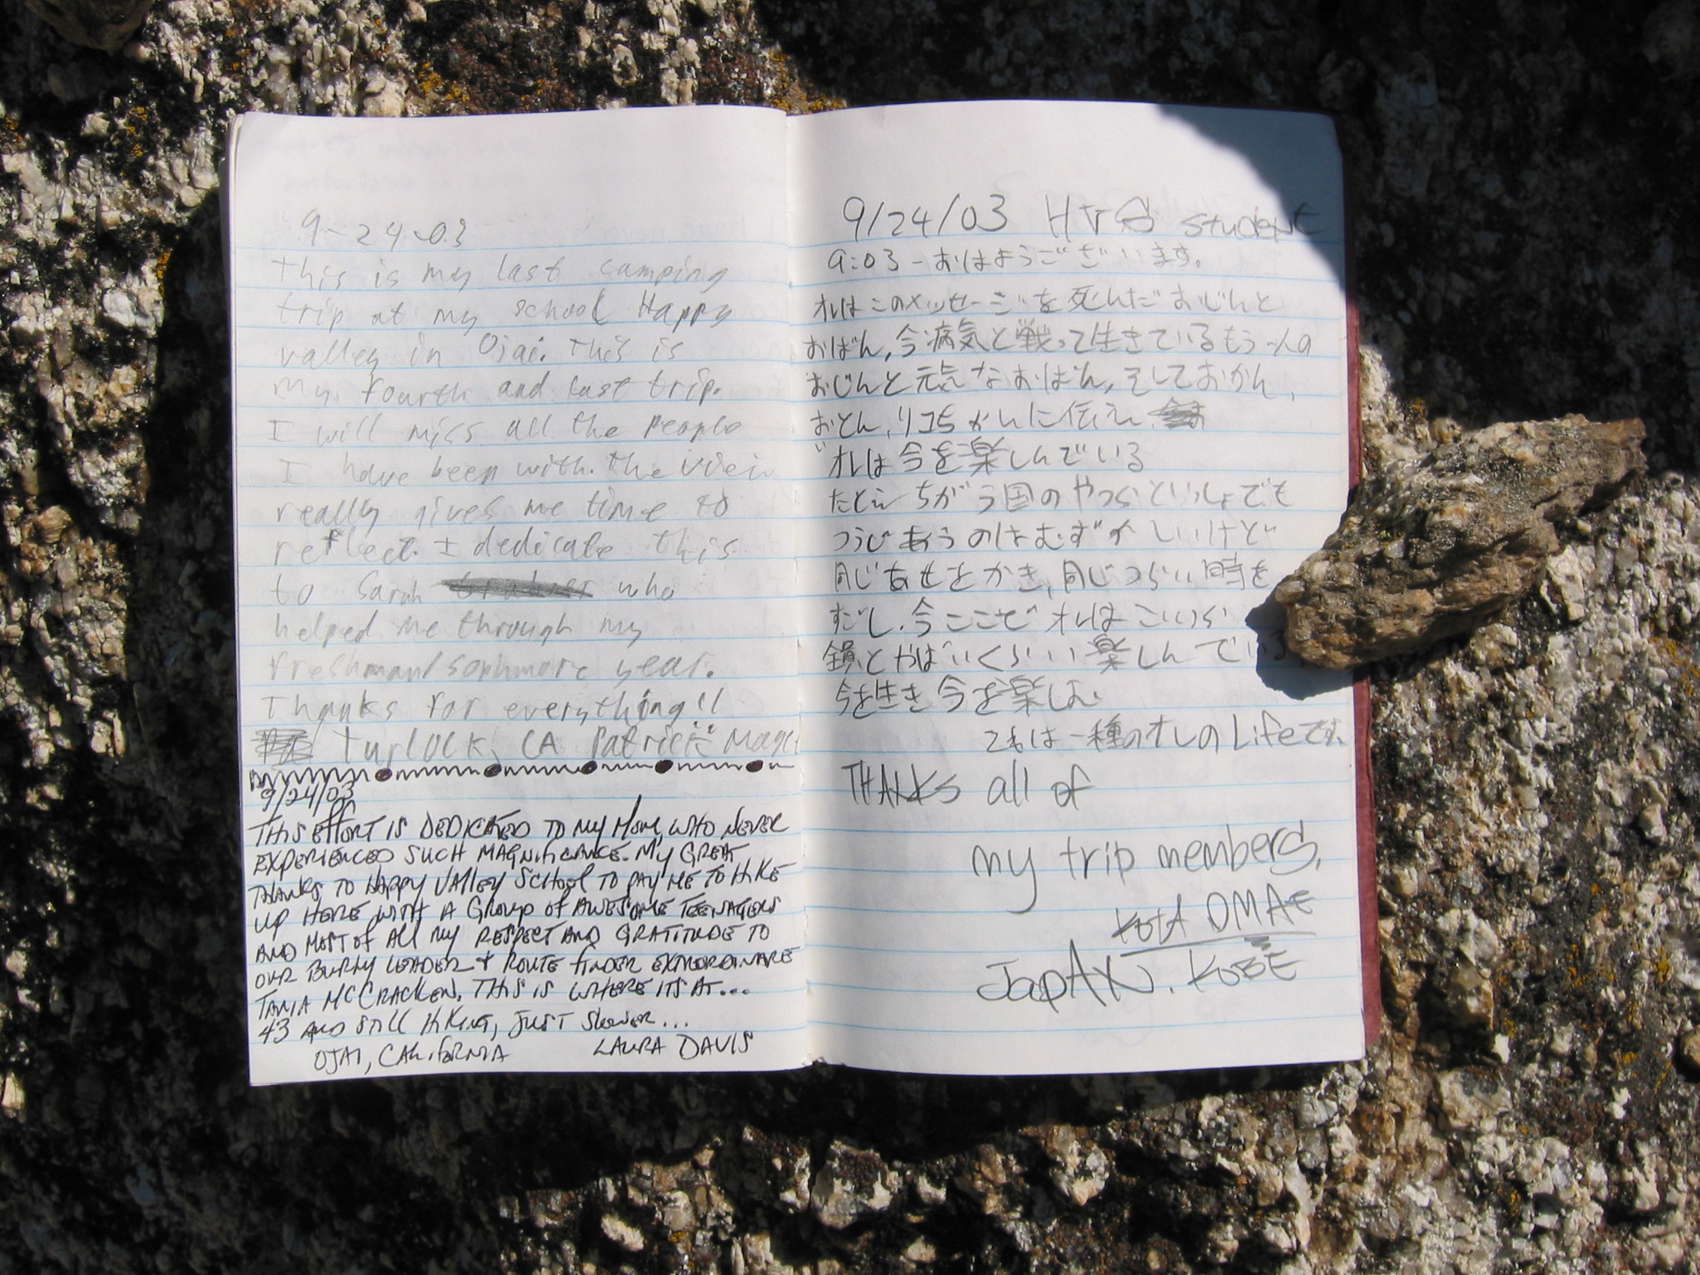 9-24-03
This is my last camping
trip at my school Happy
valley in Ojai. This is
my fourth and last trip.
I will miss all the people
I have been with. the view
really gives me time to
reflect. I dedicate this
to Sarah who
helped me through my
freshman/sophmore year.
Thanks for everything!!
Turlock, CA Patrick
9/24/03
THIS EFFORT IS DEDICATED TO MY MOM, WHO NEVER
EXPERIENCED SUCH MAGNIFICANCE. MY GREAT
THANKS TO HAPPY VALLEY SCHOOL TO PAY ME TO HIKE
UP HERE WITH A GROUP OF AWESOME TEENAGERS
AND MOST OF ALL MY RESPECT AND GRATITUDE TO
OUR BURLY LEADER + ROUTE FINDER EXTRORDINARE
TANIA MCCRACKEN. THIS IS WHERE ITS AT...
43 AND STILL HIKING, JUST SLOWER...
OJAI, CALIFORNIA LAURA DAVIS
9/24/03 HVS student
9:03 - おはようございます。
オレはこのメッセージを死んだおじんと
おばん,今病気と戦って生きているもう一人の
おじんと元気なおばん,そしておかん,
おとん,に伝え
オレは今を楽しんでいる
たとえちがう国のやつらといっしょでも
つうじあうのはむずかしいけど
同じあせをかき,同じつらい時を
すごし,今ここでオレはこいつら
全員とやばいくらい楽しんでいる
今を生き今を楽しむ
これは一種のオレのLifeです。
THANKS all of
my trip members.
KOTA OMAE
JapAN. KOBE